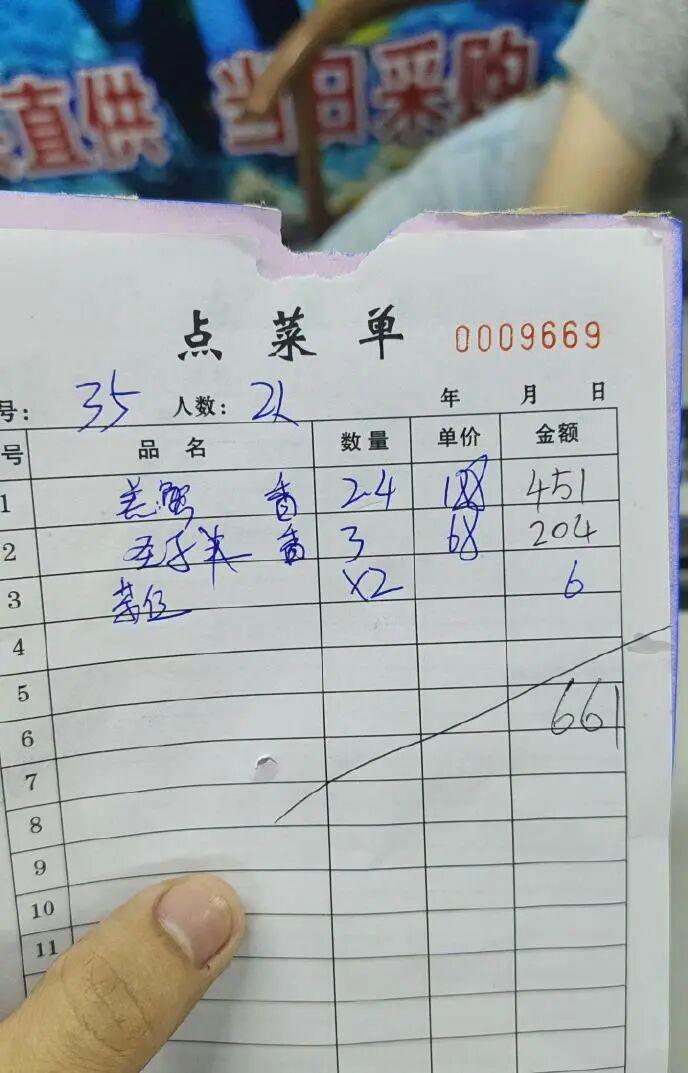 直供 当日采购
点菜单 0009669
号: 35 人数: 2人 年 月 日
号 品名 数量 单价 金额
1 羔蟹 香 2.4 188 451
2 香 3 68 204
3 茶位 x2 6
4
5
6 661
7
8
9
10
11